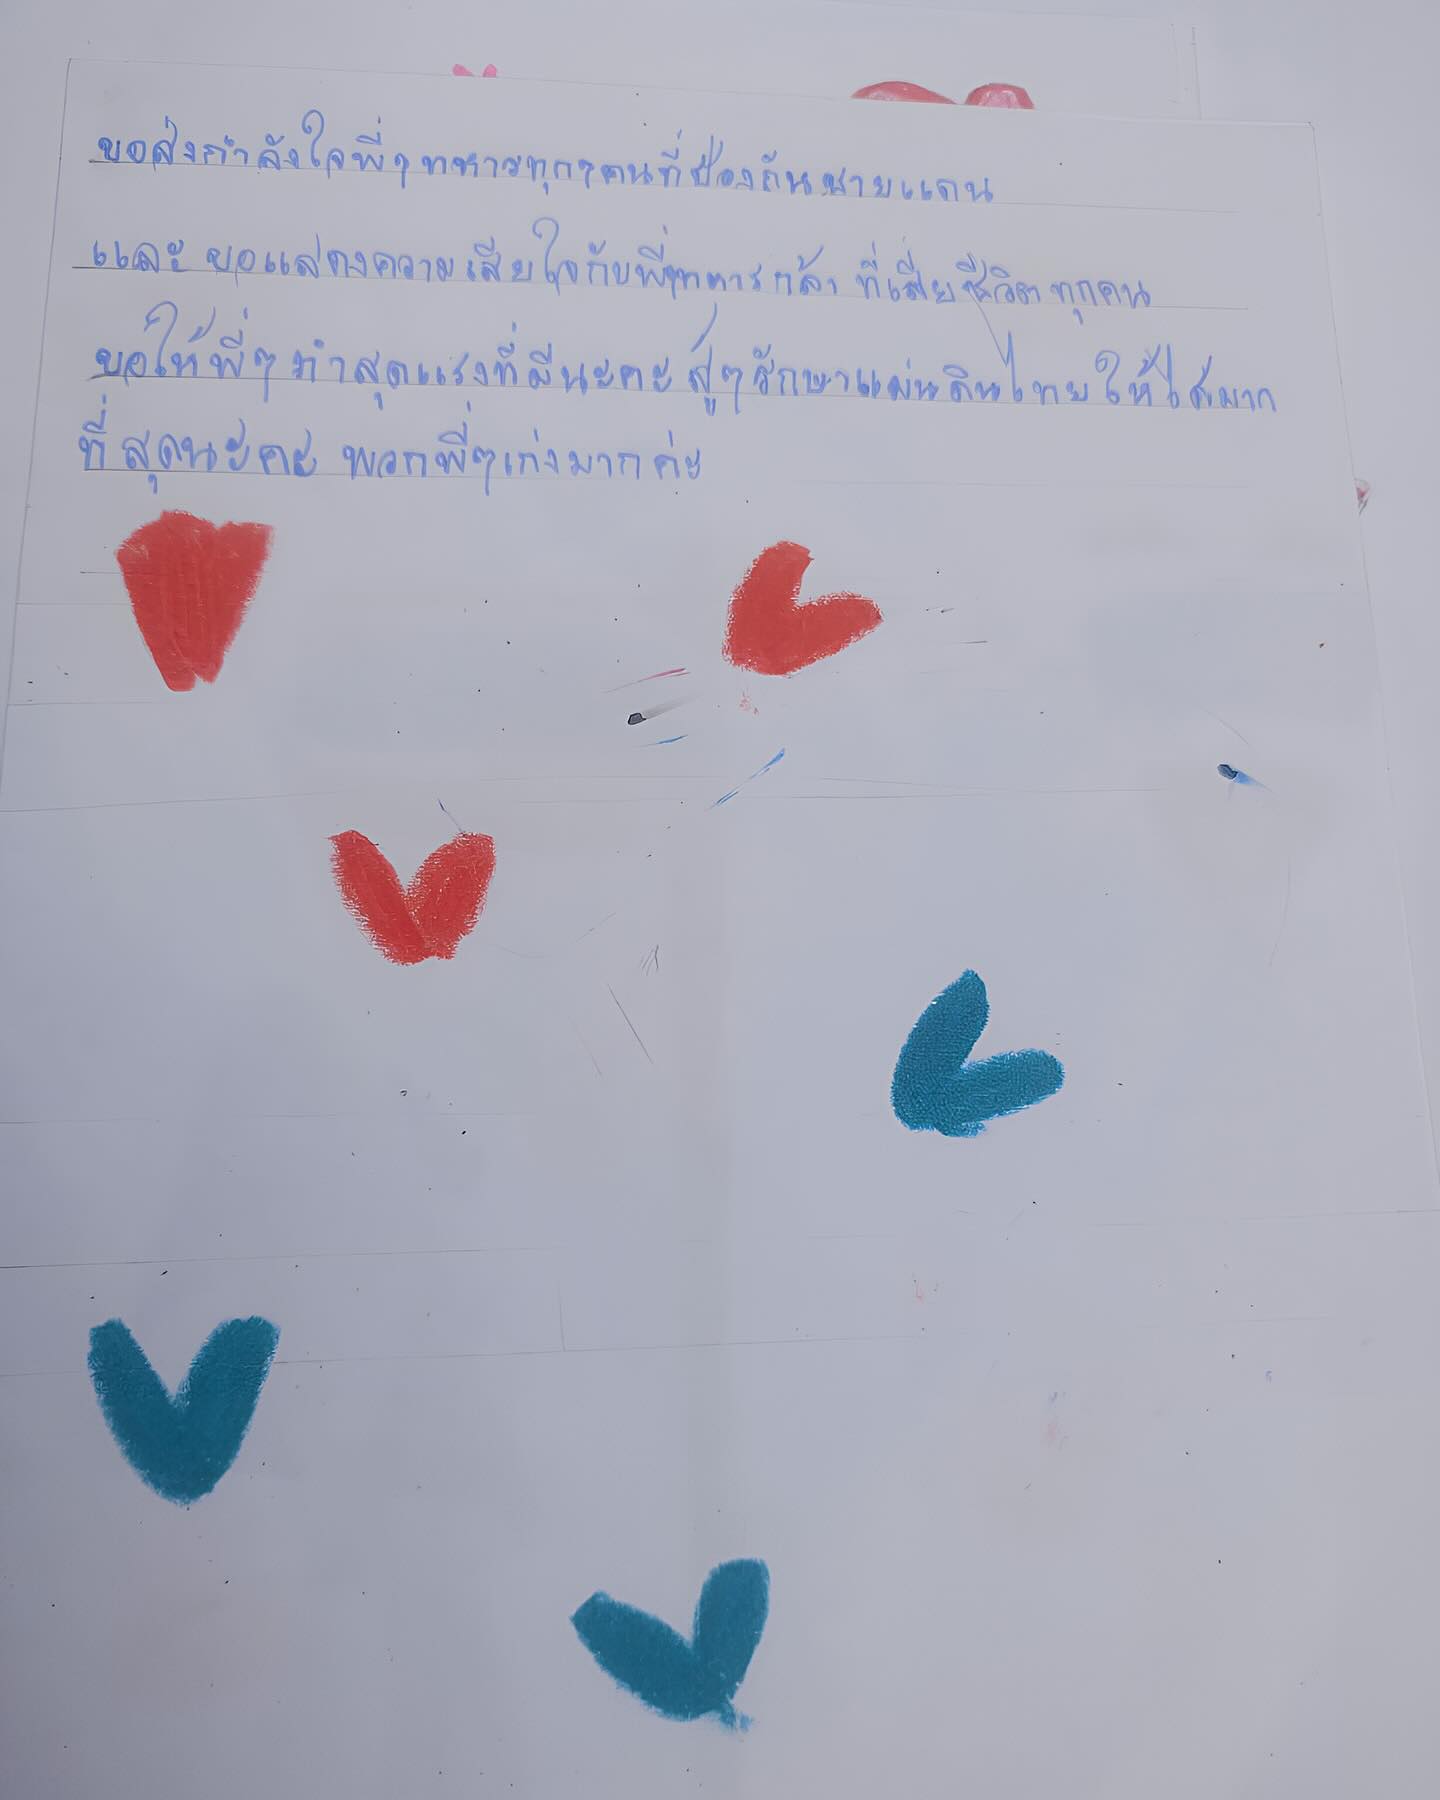 ขอส่งกำลังใจพี่ๆทหารทุกๆคนที่ป้องกันชายแดน
และ ขอแสดงความเสียใจกับพี่ๆทหารกล้า ที่เสียชีวิตทุกคน
ขอให้พี่ๆทำสุดแรงที่มีนะคะ สู้ๆรักษาแผ่นดินไทยให้ได้มาก
ที่สุดนะคะ พวกพี่ๆเก่งมากค่ะ